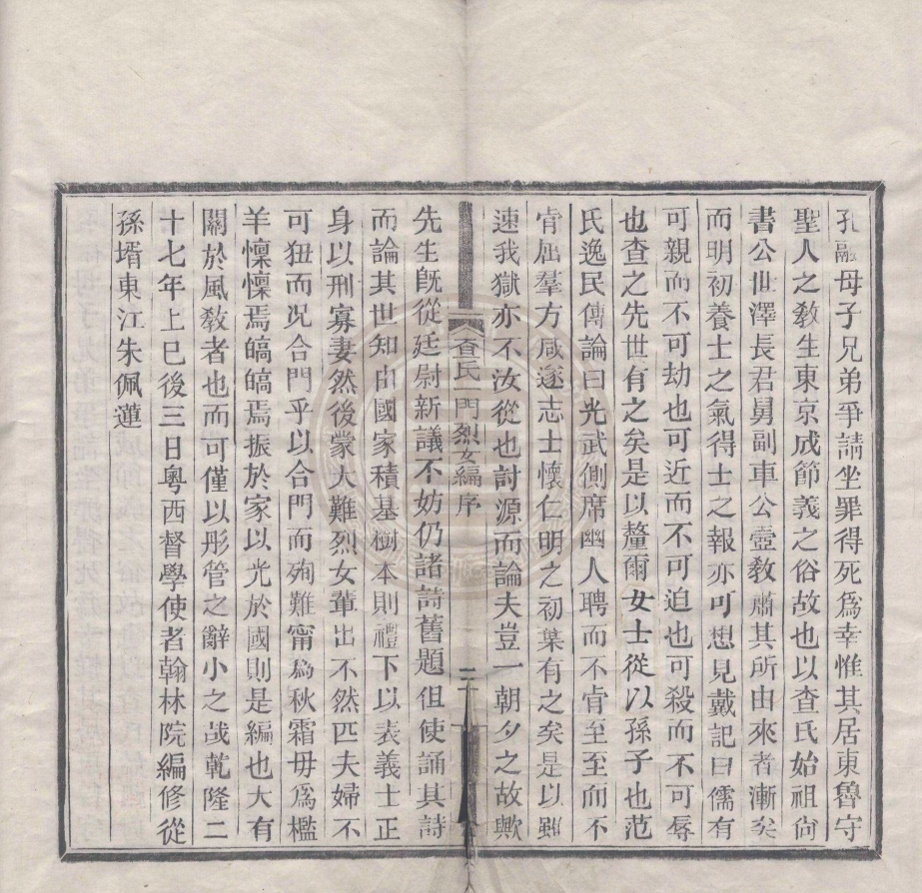 孔融母子兄弟爭請坐罪得死爲幸惟其居東魯守
聖人之敎生東京成節義之俗故也以查氏始祖尙
書公世澤長君舅副車公壼敎肅其所由來者漸矣
而明初養士之氣得士之報亦可想見戴記曰儒有
可親而不可劫也可近而不可迫也可殺而不可辱
也查之先世有之矣是以釐爾女士從以孫子也范
氏逸民傳論曰光武側席幽人聘而不肯至至而不
肯屈羣方咸遂志士懷仁明之初葉有之矣是以雖
速我獄亦不汝從也討源而論夫豈一朝夕之故歟
查氏一門烈女編序
二十
先生旣從廷尉新議不妨仍諸詩舊題但使誦其詩
而論其世知由國家積基樹本則禮下以表義士正
身以刑寡妻然後蒙大難烈女輩出不然匹夫婦不
可狃而况合門乎以合門而殉難甯爲秋霜毋爲檻
羊懍懍焉皜皜焉振於家以光於國則是編也大有
關於風敎者也而可僅以彤管之辭小之哉乾隆二
十七年上巳後三日粤西督學使者翰林院編修從
孫壻東江朱佩蓮